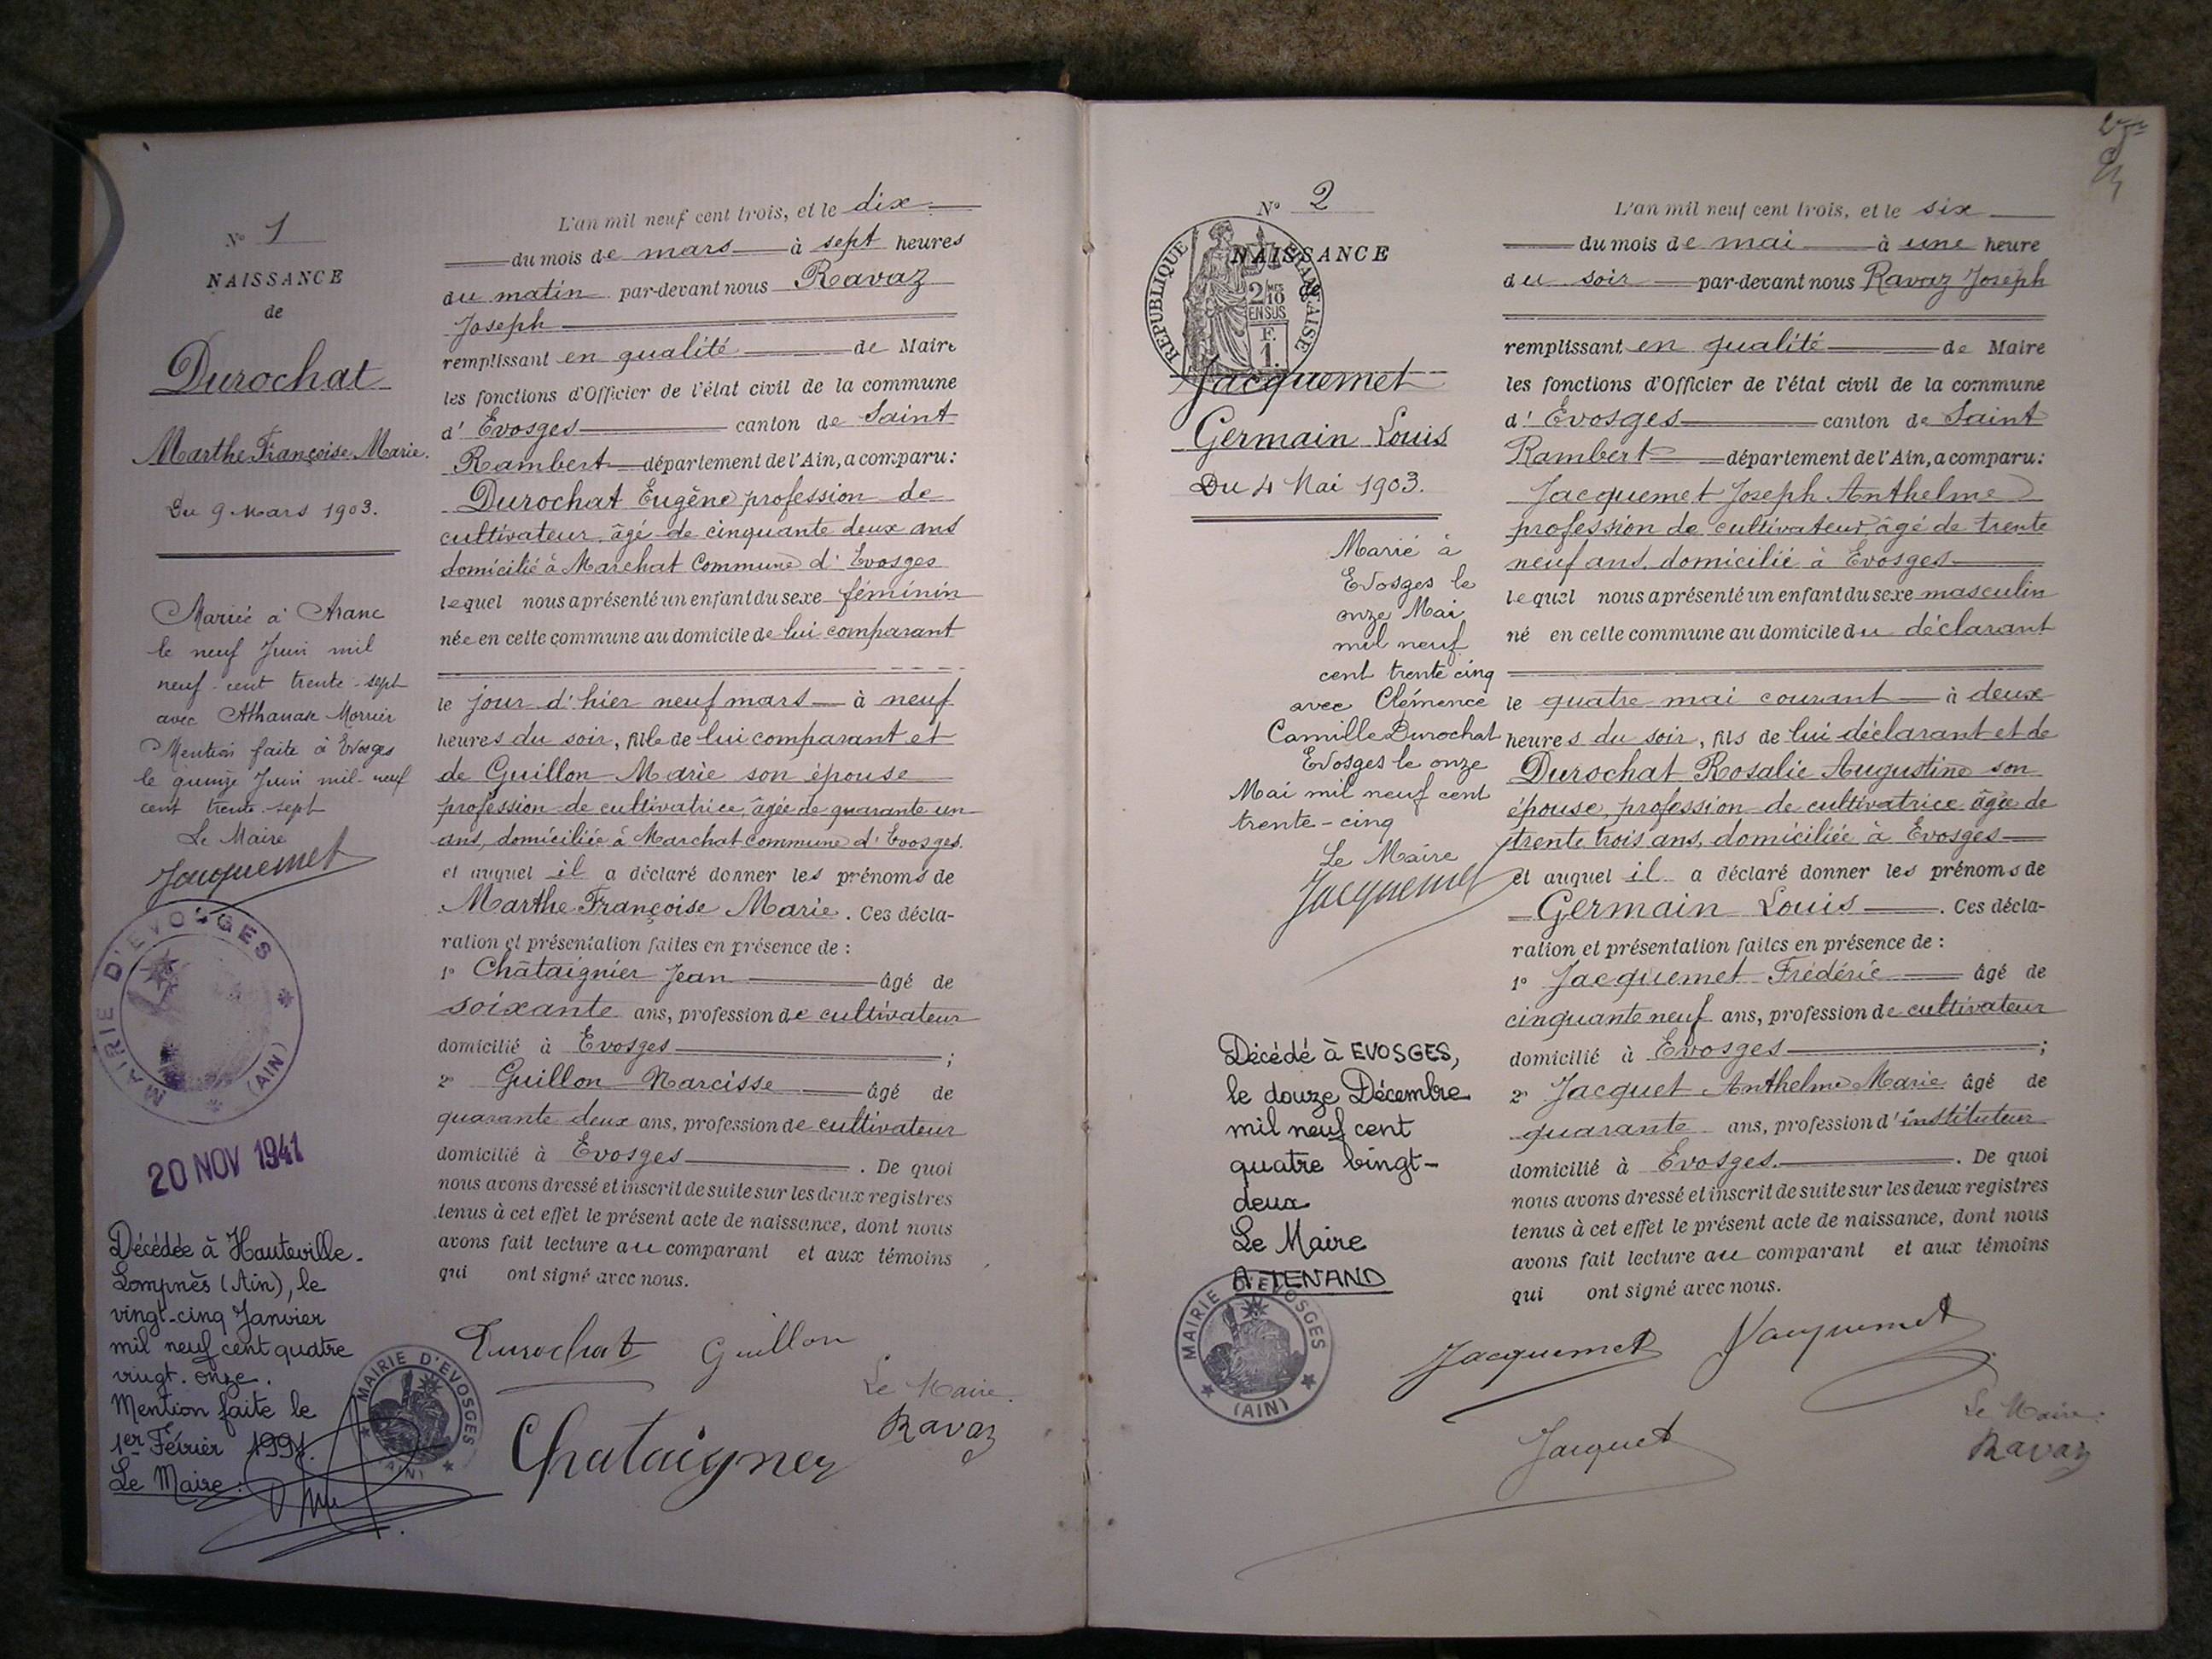 N° 1
NAISSANCE
de
Durochat
Marthe Françoise Marie.
Du 9 Mars 1903.
Mariée à Aranc
le neuf Juin mil
neuf-cent trente-sept
avec Athanase Morrier
Mention faite à Evosges
le quinze Juin mil-neuf
cent trente-sept
Le Maire
Jacquemet
MAIRIE D'EVOSGES (AIN)
20 NOV 1941
Décédée à Hauteville-
Lompnès (Ain), le
vingt-cinq Janvier
mil neuf cent quatre
vingt-onze.
Mention faite le
1er Février 1991.
Le Maire :
MAIRIE D'EVOSGES (AIN)
L'an mil neuf cent trois, et le dix
du mois de mars à sept heures
du matin par-devant nous Ravaz
Joseph
remplissant en qualité de Maire
les fonctions d'Officier de l'état civil de la commune
d' Evosges canton de Saint
Rambert département de l'Ain, a comparu :
Durochat Eugène profession de
cultivateur âgé de cinquante deux ans
domicilié à Marchat Commune d' Evosges
lequel nous a présenté un enfant du sexe féminin
née en cette commune au domicile de lui comparant
le jour d'hier neuf mars à neuf
heures du soir, fille de lui comparant et
de Guillon Marie son épouse
profession de cultivatrice, âgée de quarante un
ans, domiciliée à Marchat commune d' Evosges.
et auquel il a déclaré donner les prénoms de
Marthe Françoise Marie. Ces décla-
ration et présentation faites en présence de :
1° Châtaignier Jean âgé de
soixante ans, profession de cultivateur
domicilié à Evosges ;
2° Guillon Narcisse âgé de
quarante deux ans, profession de cultivateur
domicilié à Evosges . De quoi
nous avons dressé et inscrit de suite sur les deux registres
tenus à cet effet le présent acte de naissance, dont nous
avons fait lecture au comparant et aux témoins
qui ont signé avec nous.
Durochat Guillon
Le Maire
Ravaz
Chataigner
N° 2
NAISSANCE
de
REPUBLIQUE FRANÇAISE
2/10 MES
EN SUS
F.
1.
Jacquemet
Germain Louis
Du 4 Mai 1903.
Marié à
Evosges le
onze Mai
mil neuf
cent trente cinq
avec Clémence
Camille Durochat
Evosges le onze
Mai mil neuf cent
trente-cinq
Le Maire
Jacquemet
Décédé à EVOSGES,
le douze Décembre
mil neuf cent
quatre vingt-
deux
Le Maire
A. TENAND
MAIRIE D'EVOSGES (AIN)
L'an mil neuf cent trois, et le six
du mois de mai à une heure
du soir par-devant nous Ravaz Joseph
remplissant en qualité de Maire
les fonctions d'Officier de l'état civil de la commune
d' Evosges canton de Saint
Rambert département de l'Ain, a comparu :
Jacquemet Joseph Anthelme
profession de cultivateur âgé de trente
neuf ans, domicilié à Evosges
lequel nous a présenté un enfant du sexe masculin
né en cette commune au domicile du déclarant
le quatre mai courant à deux
heures du soir, fils de lui déclarant et de
Durochat Rosalie Augustine son
épouse, profession de cultivatrice âgée de
trente trois ans, domiciliée à Evosges
et auquel il a déclaré donner les prénoms de
Germain Louis . Ces décla-
ration et présentation faites en présence de :
1° Jacquemet Frédéric âgé de
cinquante neuf ans, profession de cultivateur
domicilié à Evosges ;
2° Jacquet Anthelme Marie âgé de
quarante ans, profession d'instituteur
domicilié à Evosges. . De quoi
nous avons dressé et inscrit de suite sur les deux registres
tenus à cet effet le présent acte de naissance, dont nous
avons fait lecture au comparant et aux témoins
qui ont signé avec nous.
Jacquemet Jacquemet
Le Maire
Ravaz
Jacquet